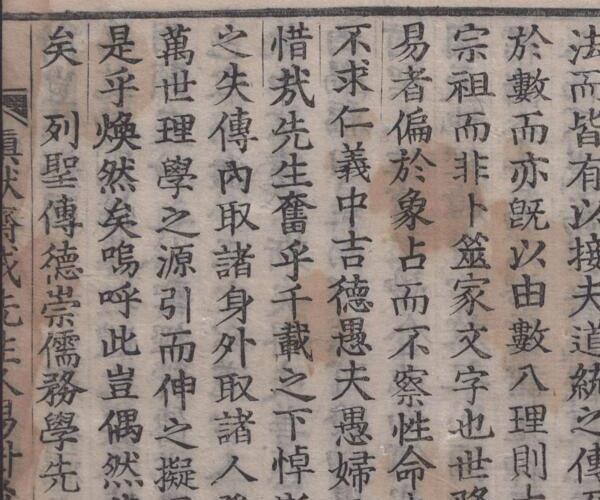 法而皆有以接夫道統之傳
於數而亦旣以由數入理則
宗祖而非卜筮家文字也世
易者偏於象占而不察性命
不求仁義中吉德愚夫愚婦
惜㢤先生奮乎千載之下悼
之失傳內取諸身外取諸人
萬世理學之源引而伸之擬
是乎煥然矣嗚呼此豈偶然
矣 列聖傳德崇儒務學先
先生